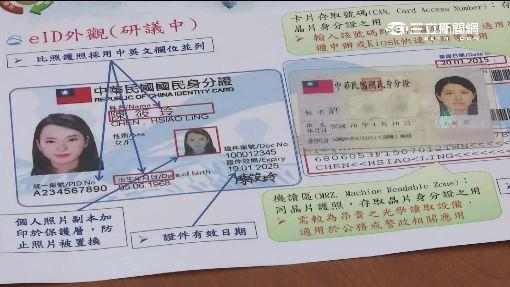 eID外觀(研議中)
比照護照採用中英文欄位並列
卡片存取號碼(CAN, Card Access Number)
晶片身分證之用
輸入該號碼
櫃中辦或Kiosk
三立新聞網
中華民國國民身分證
REPUBLIC OF CHINA IDENTITY CARD
姓名/Name
陳筱玲
CHEN, HSIAO LING
性別/Sex
女/F
證件號碼/Doc No
100012345
證件效期/Expiry
19.01.2025
統一編號/PID No
A234567890
出生年月日/Date of birth
05.06.1968
陳筱玲
20.01.2015
中華民國國民身分證
CHEN<<HSIAO<LING<<<<
個人照片副本加
印於保護層,防
止照片被置換
證件有效日期
機讀區(MRZ, Machine Readable Zone):
同晶片護照,存取晶片身分證之用
需較為昂貴之光學讀取設備,
適用於公務或警政相關應用